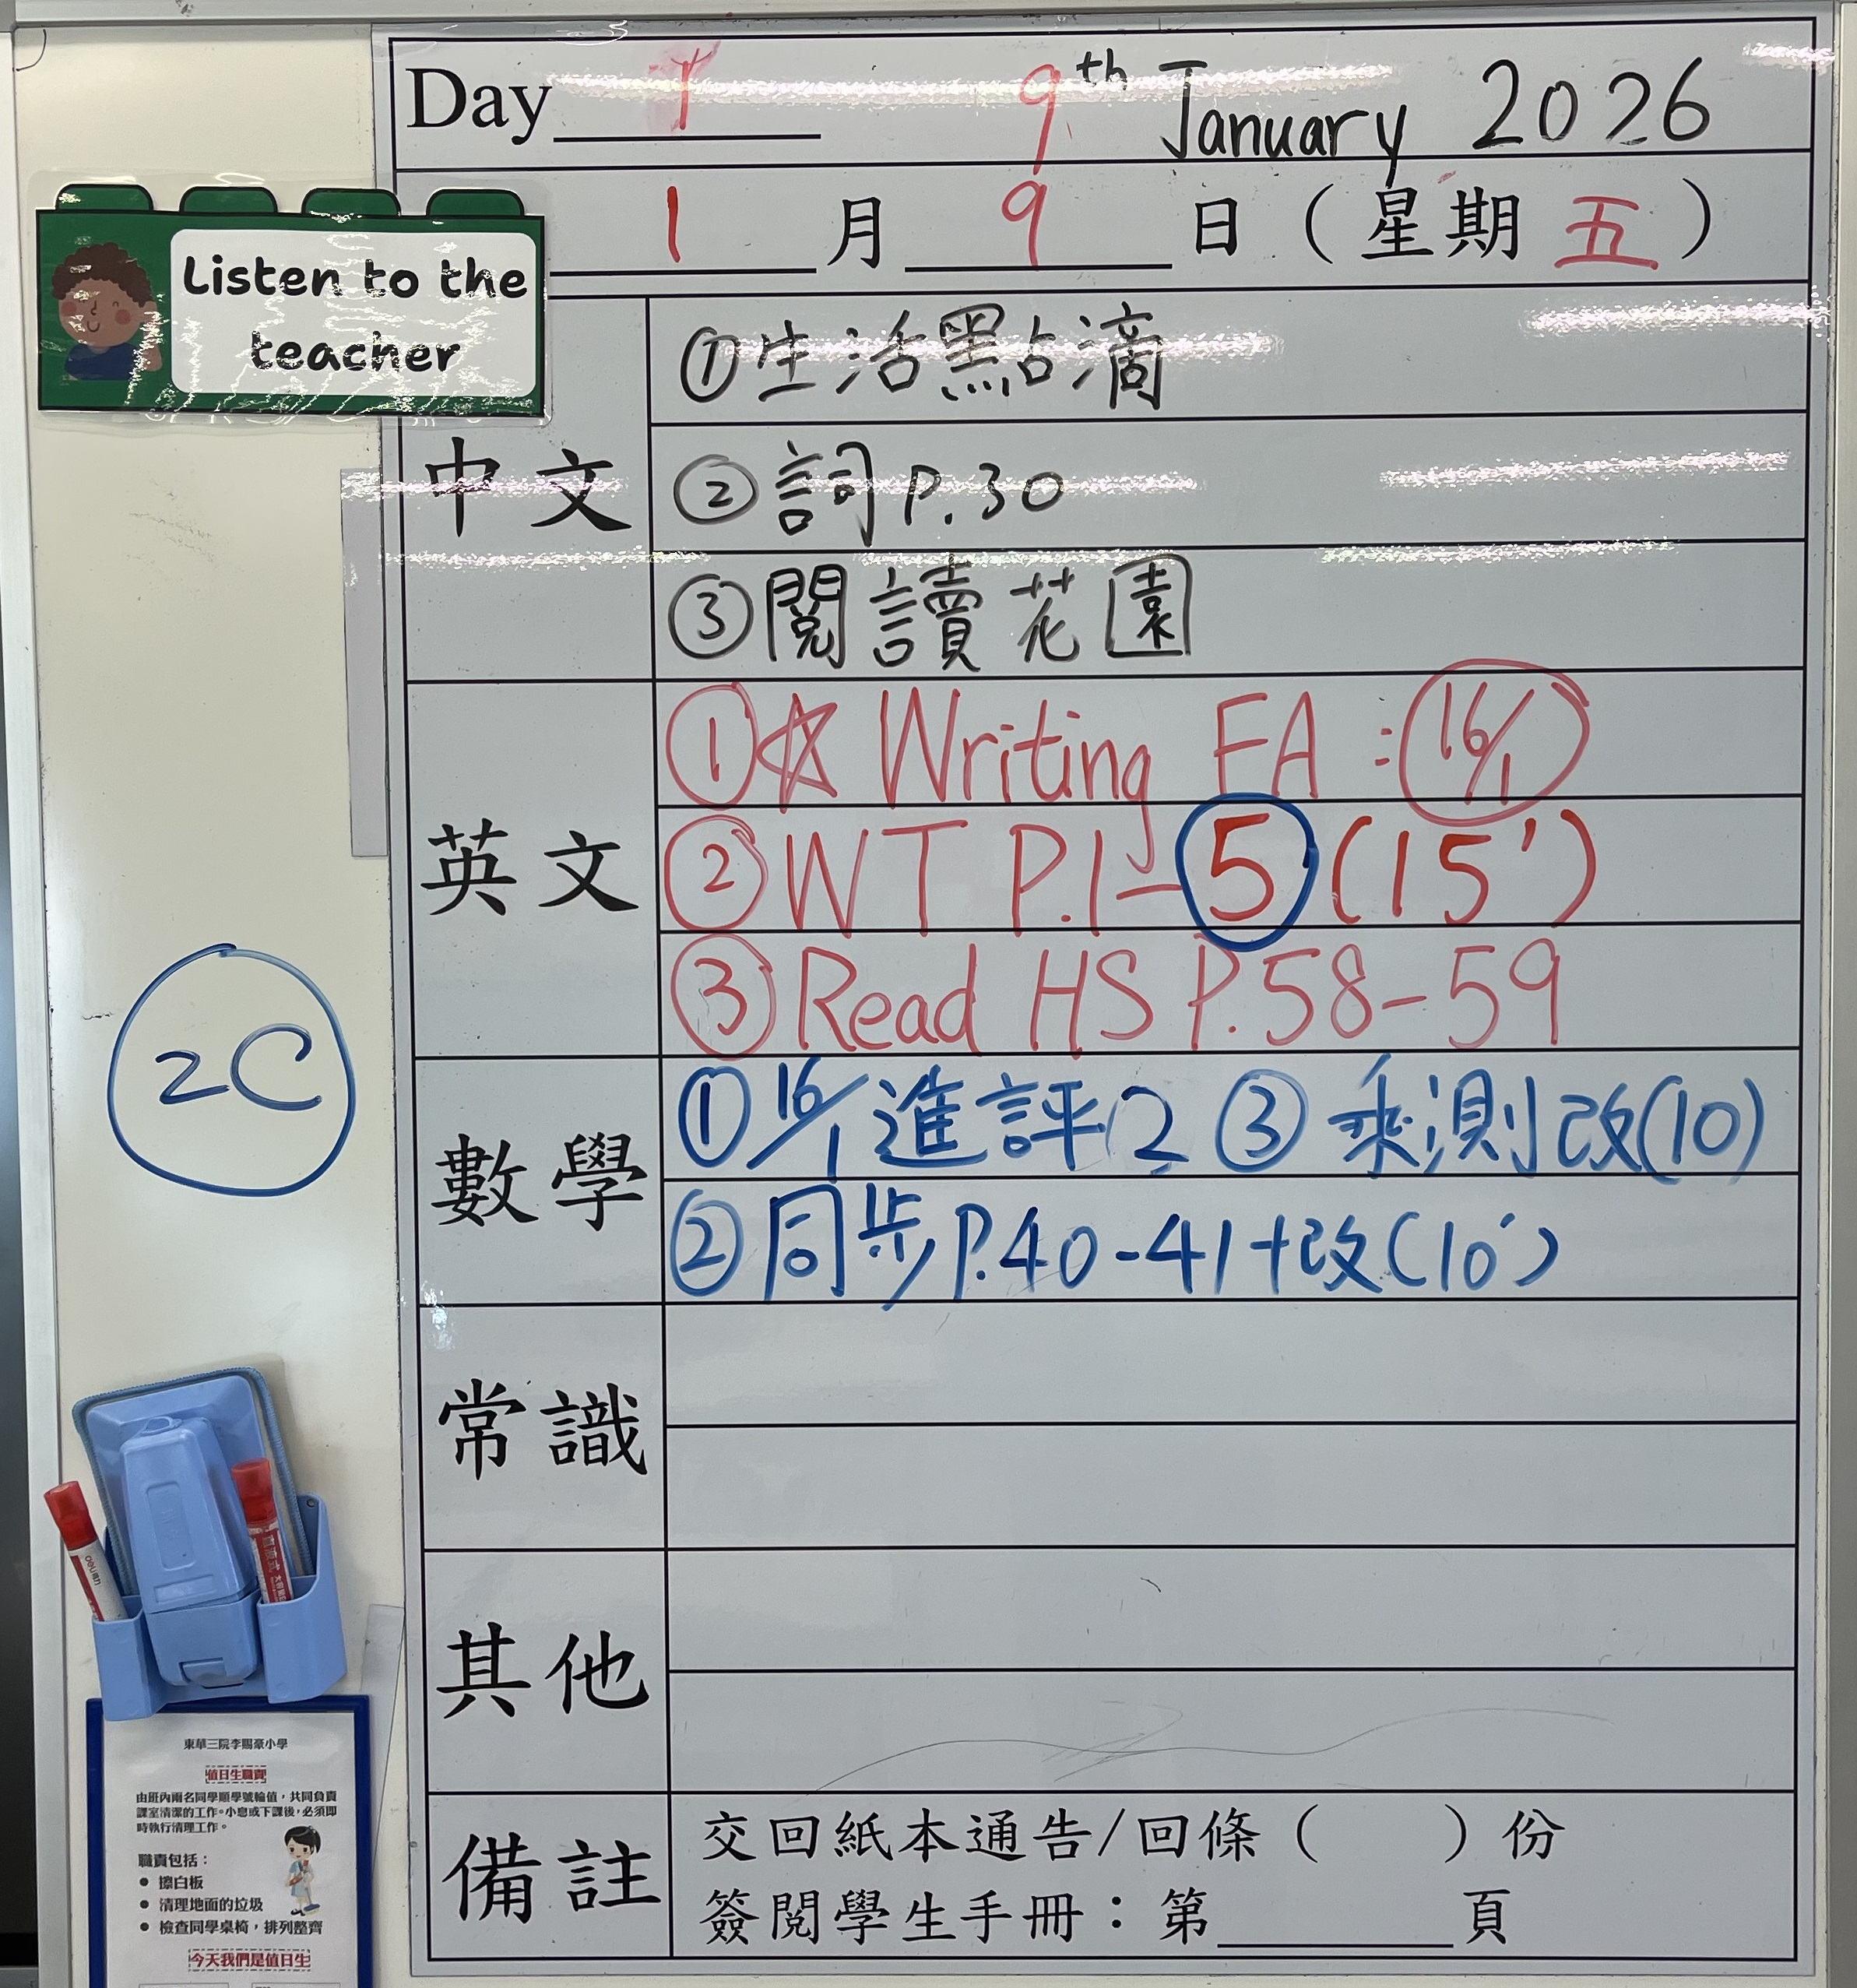 Day 1 9th January 2026
1月9日（星期五）
Listen to the
teacher
中文
①生活點滴
②詞P.30
③閱讀花園
英文
①☆ Writing FA : 16/1
②WT P.1-5 (15')
③Read HS P.58-59
數學
①16/1進評2 ③乘測改(10)
②同步P.40-41+改(10')
2C
常識
其他
備註
交回紙本通告/回條（ ）份
簽閱學生手冊：第____頁
東華三院李賜豪小學
值日生職責
由班內兩名同學順學號輪值，共同負責
課室清潔的工作。小息或下課後，必須即
時執行清理工作。
職責包括：
● 擦白板
● 清理地面的垃圾
● 檢查同學桌椅，排列整齊
今天我們是值日生